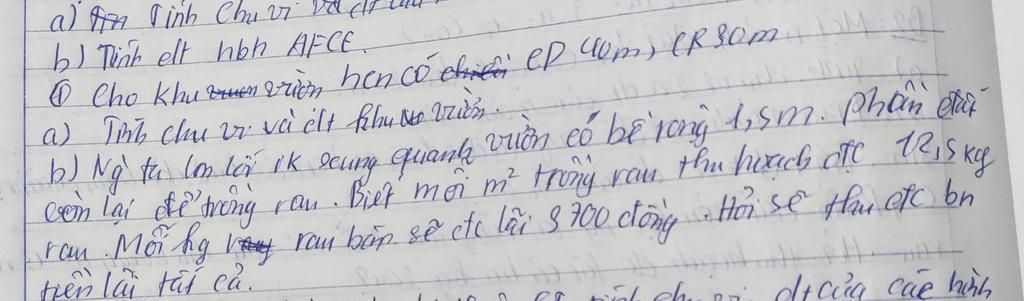 a) Tính chu vi và dt
b) Tính dt hbh AFCE.
① Cho khu vườn hcn có CD 40m, CR 30m
a) Tính chu vi và dt khu vườn.
b) Ng ta lm lối đk xung quanh vườn có bề rộng 1,5m. phần đất
còn lại để trồng rau. Biết mỗi m² trồng rau thu hoạch đc 12,5 kg
rau. Mỗi kg rau bán sẽ đc lãi 3700 đồng. Hỏi sẽ thu đc bn
tiền lãi tất cả.
dt của các hình